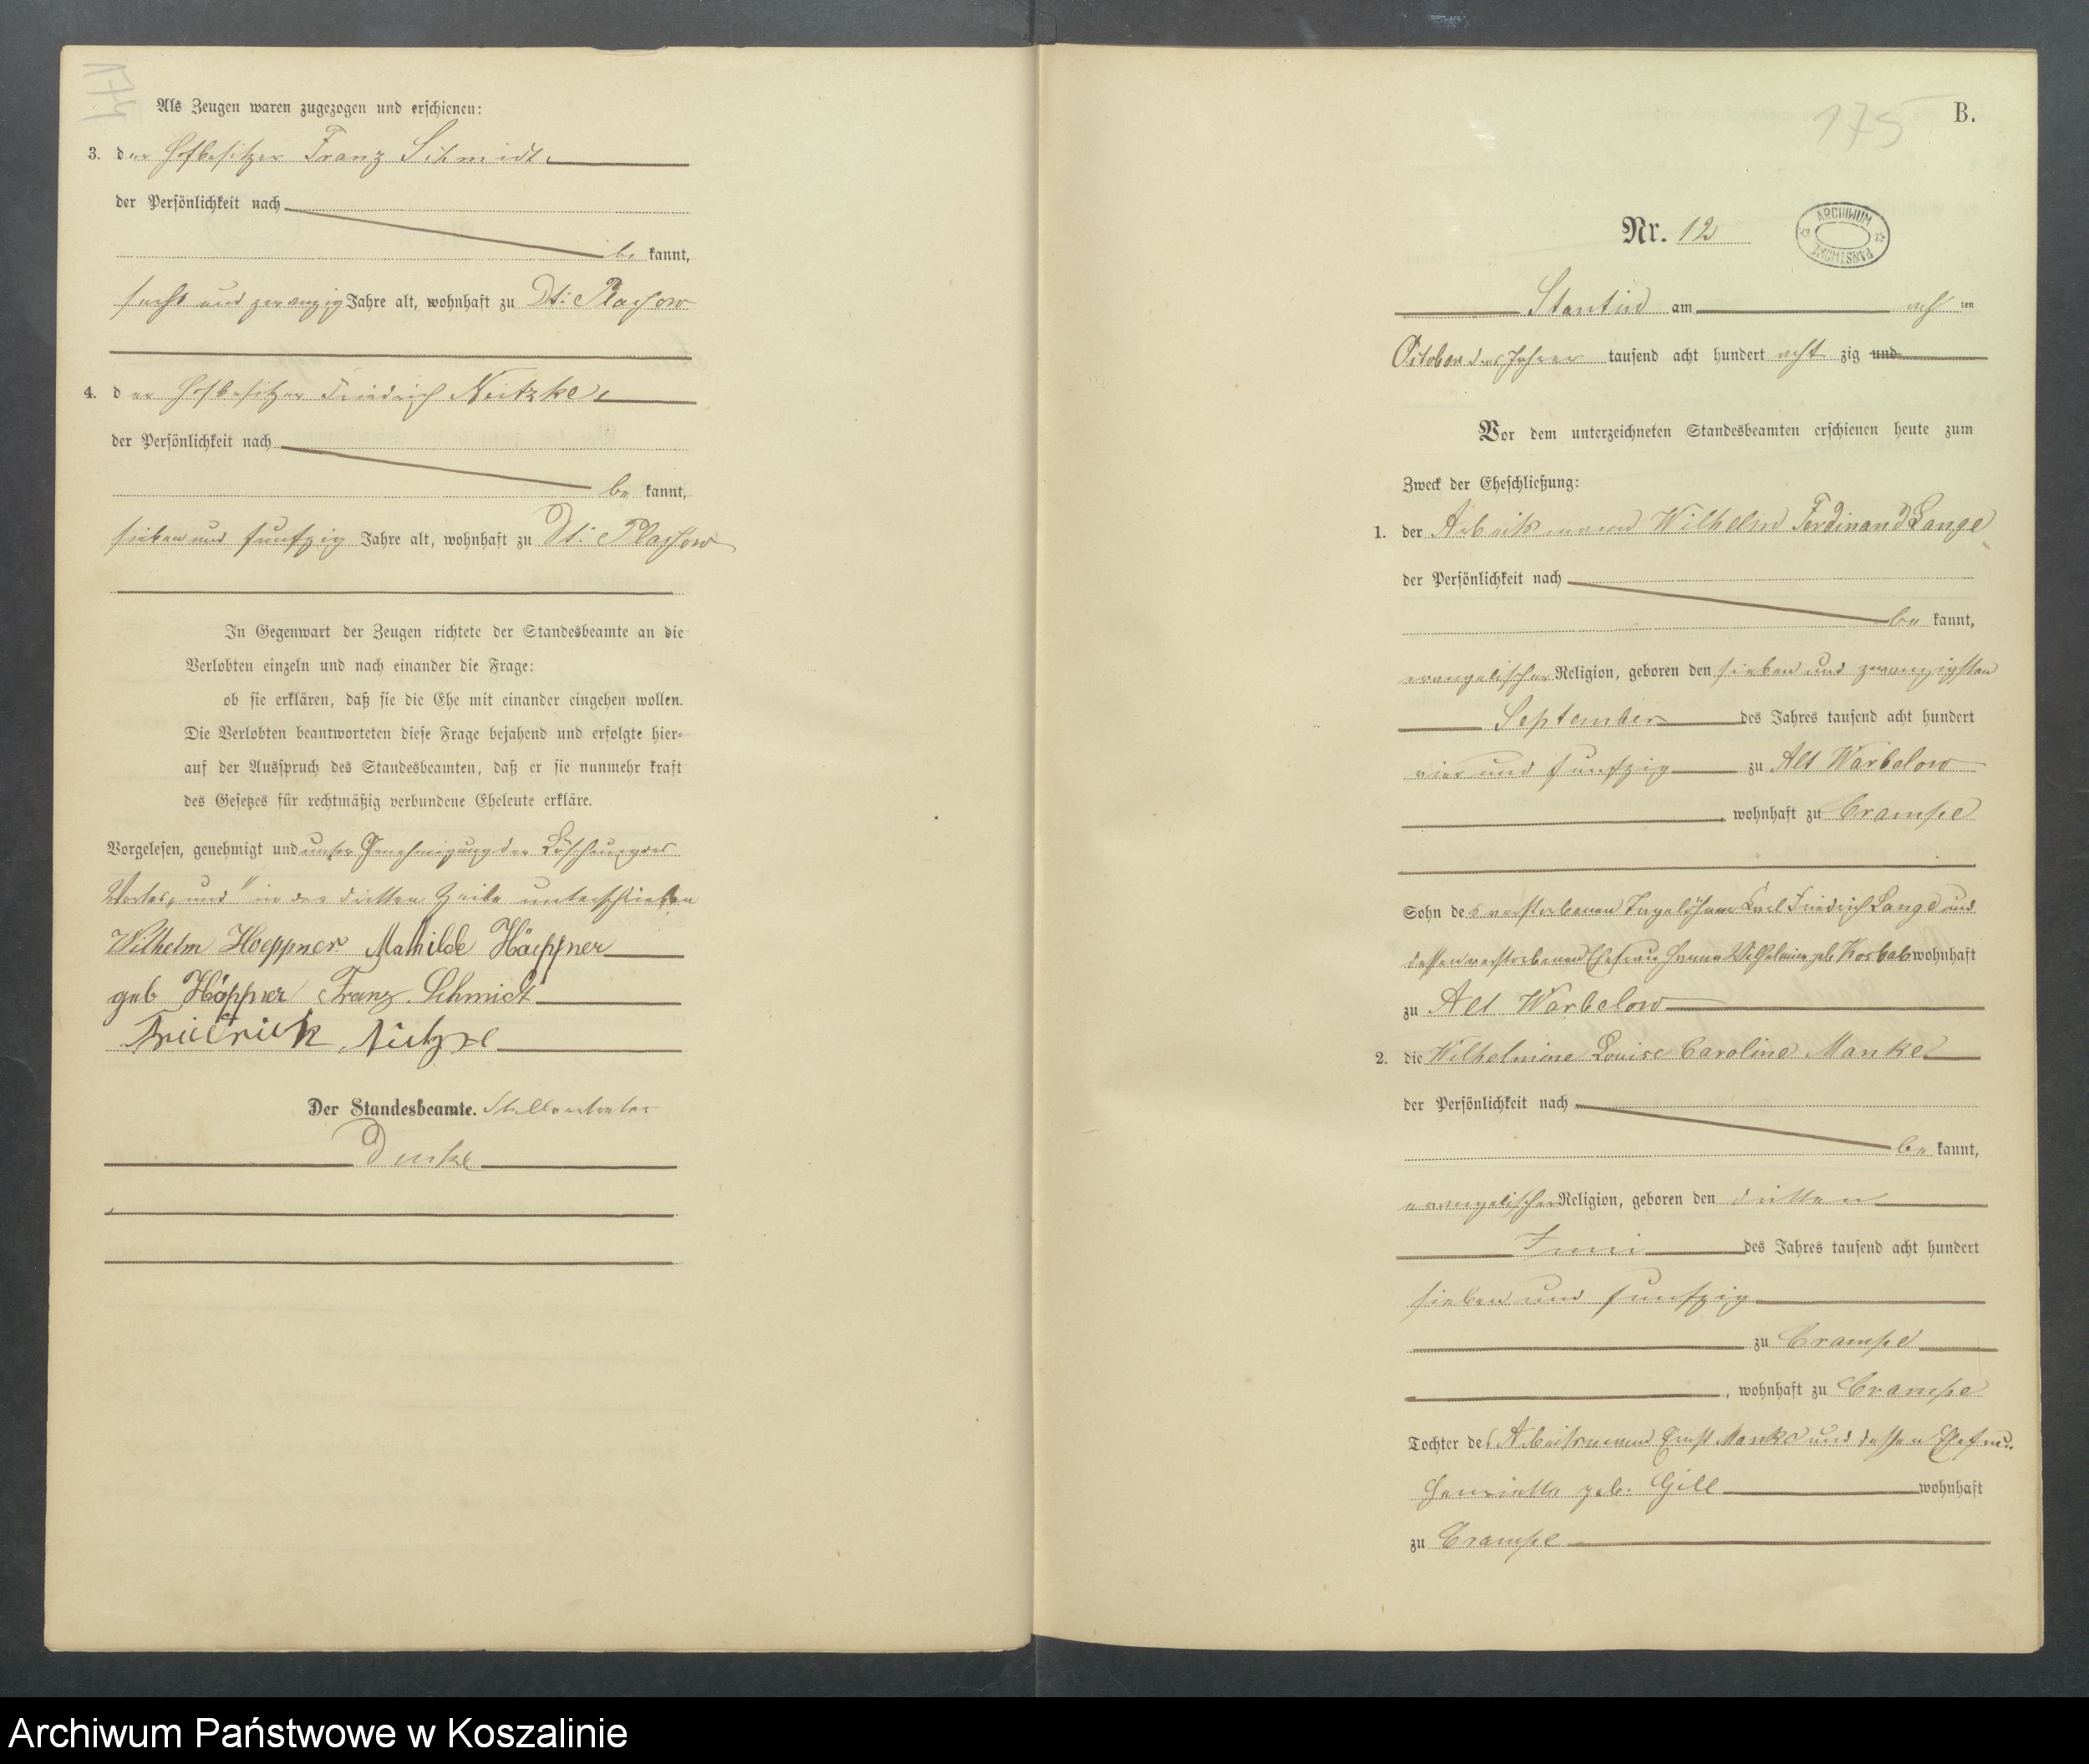 Als Zeugen waren zugezogen und erschienen:
3. der Hofbesitzer Franz Schmidt,
der Persönlichkeit nach
be kannt,
sechs und zwanzig Jahre alt, wohnhaft zu Dt: Plassow
4. der Hofbesitzer Friedrich Neitzke,
der Persönlichkeit nach
be kannt,
sieben und funfzig Jahre alt, wohnhaft zu Dt: Plassow
In Gegenwart der Zeugen richtete der Standesbeamte an die
Verlobten einzeln und nach einander die Frage:
ob sie erklären, daß sie die Ehe mit einander eingehen wollen.
Die Verlobten beantworteten diese Frage bejahend und erfolgte hier-
auf der Ausspruch des Standesbeamten, daß er sie nunmehr kraft
des Gesetzes für rechtmäßig verbundene Eheleute erkläre.
Vorgelesen, genehmigt und unter Genehmigung der Löschung des
Wortes „und" in der dritten Zeile unterschrieben
Wilhelm Hoeppner Mathilde Höppner
geb Höppner Franz Schmidt
Friedrich
Der Standesbeamte. Stellvertreter
175
B.
Nr. 12
ARCHIWUM PAŃSTWOWE
Stantin am acht ten
October des Jahres tausend acht hundert acht zig und
Vor dem unterzeichneten Standesbeamten erschienen heute zum
Zweck der Eheschließung:
1. der Arbeitsmann Wilhelm Ferdinand Lange
der Persönlichkeit nach
be kannt,
evangelischer Religion, geboren den sieben und zwanzigsten
September des Jahres tausend acht hundert
vier und funfzig zu Alt Warbelow
, wohnhaft zu Crampe
Sohn des verstorbenen Tagelöhner Carl Friedrich Lange und
dessen verstorbenen Ehefrau Hanna Wilhelmine geb Kosbab wohnhaft
zu Alt Warbelow
2. die Wilhelmine Louise Caroline Manke
der Persönlichkeit nach
be kannt,
evangelischer Religion, geboren den dritten
Juni des Jahres tausend acht hundert
sieben und funfzig
zu Crampe
, wohnhaft zu Crampe
Tochter des Arbeitsmann Ernst Manke und dessen Ehefrau
Henriette geb. Gill wohnhaft
zu Crampe
Archiwum Państwowe w Koszalinie